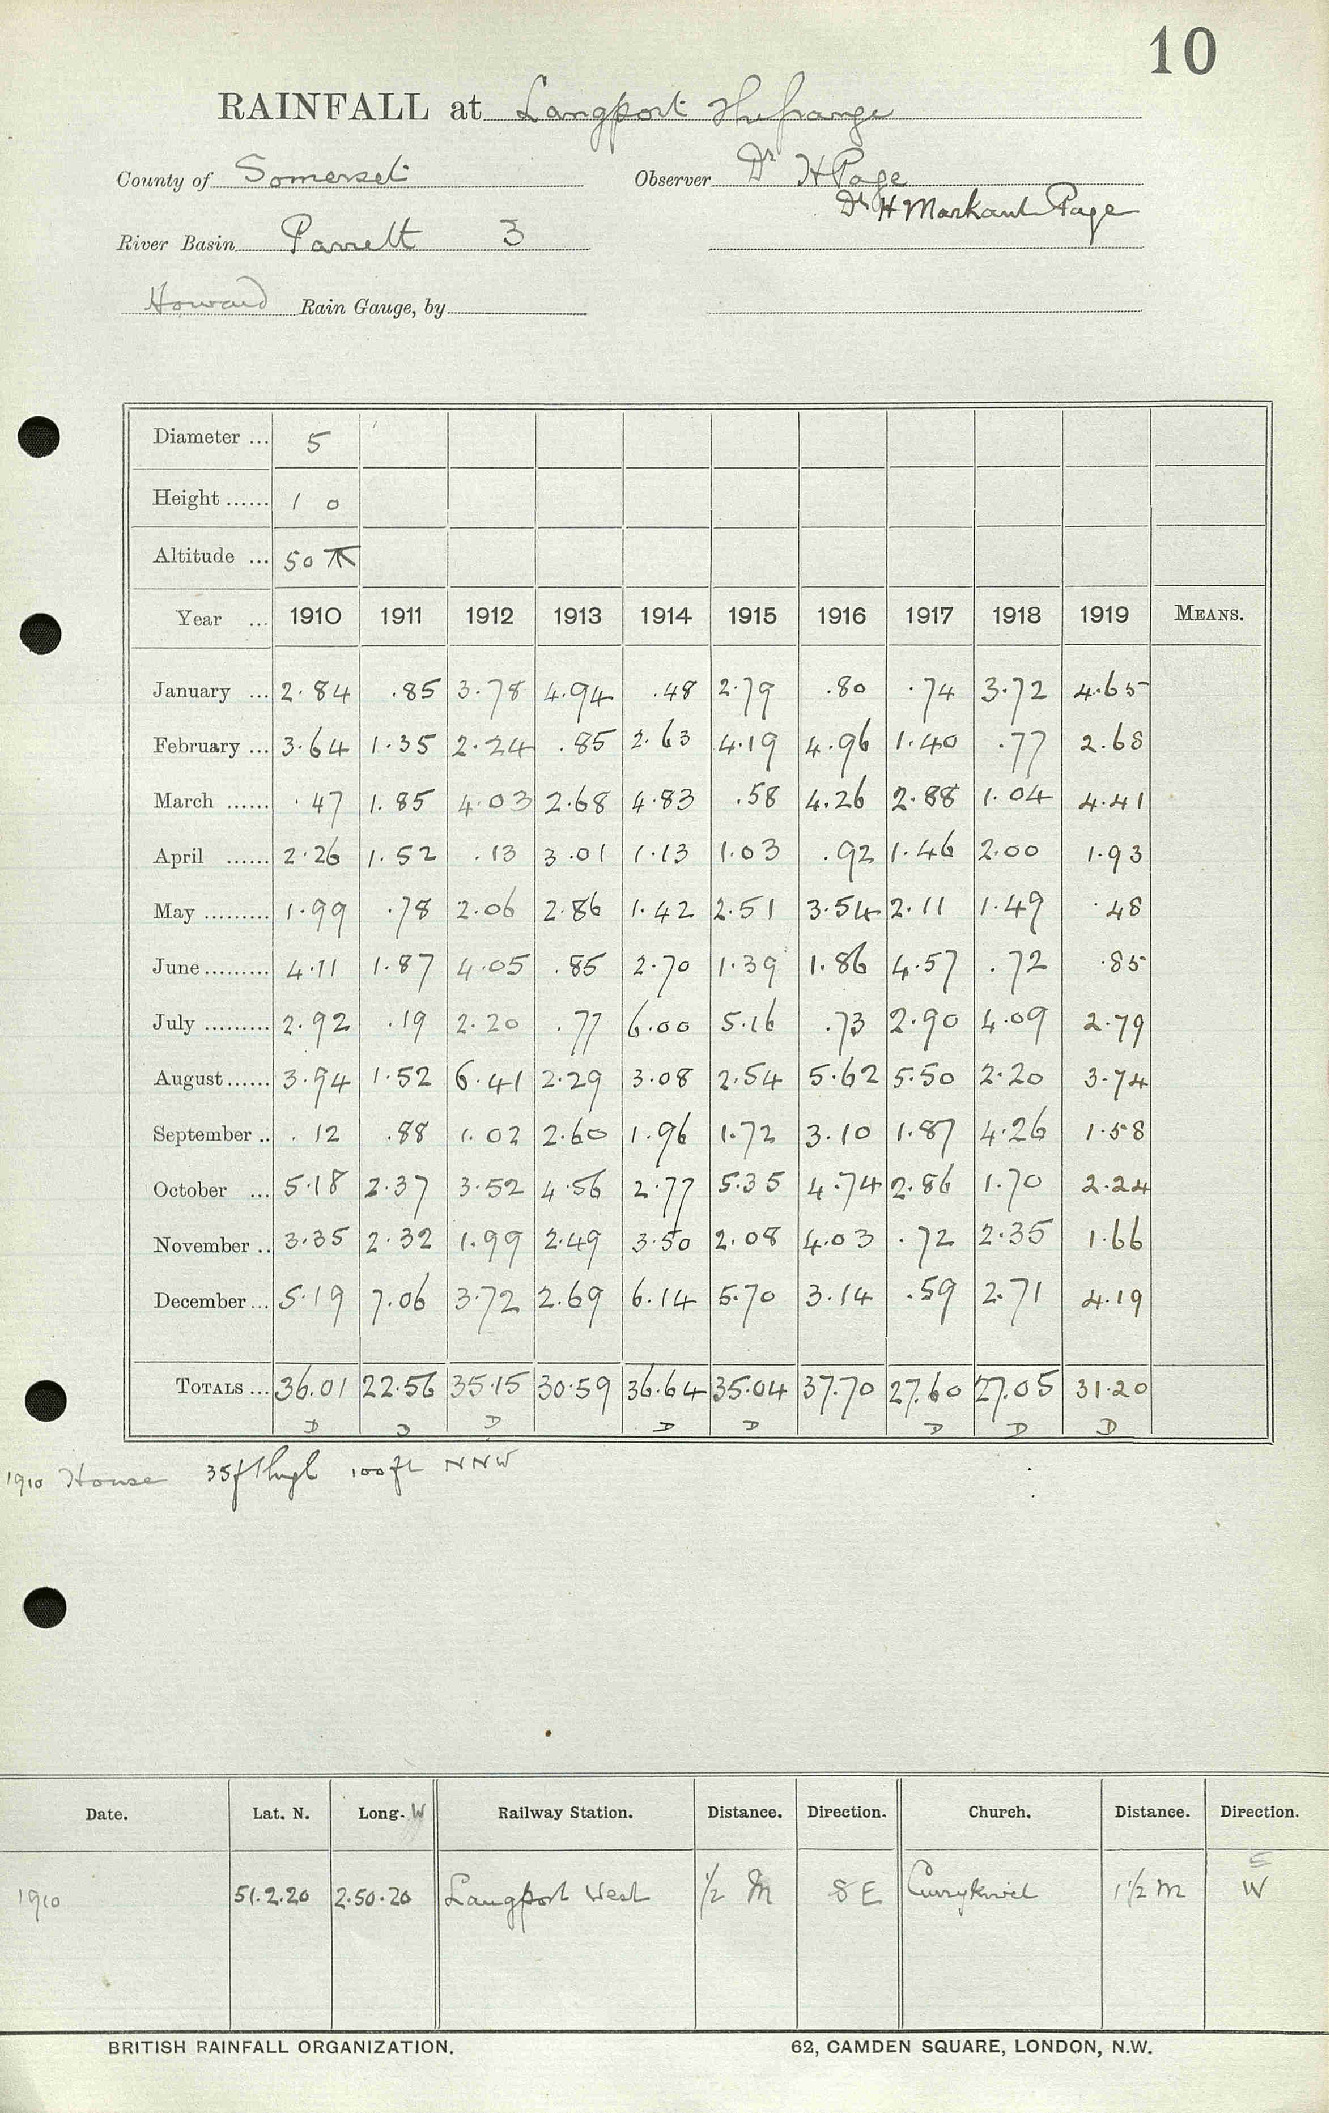 10
RAINFALL at Langport The Grange
County of Somerset Observer Dr H Page
Dr H Markant Page
River Basin Parrett 3
Howard Rain Gauge, by
Diameter ... 5
Height ...... 1 0
Altitude ... 50
Year ... 1910 1911 1912 1913 1914 1915 1916 1917 1918 1919 MEANS.
January ... 2.84 .85 3.78 4.94 .48 2.79 .80 .74 3.72 4.65
February ... 3.64 1.35 2.24 .85 2.63 4.19 4.96 1.40 .77 2.68
March ...... .47 1.85 4.03 2.68 4.83 .58 4.26 2.88 1.04 4.41
April ...... 2.26 1.52 .13 3.01 1.13 1.03 .92 1.46 2.00 1.93
May ......... 1.99 .78 2.06 2.86 1.42 2.51 3.54 2.11 1.49 .48
June ......... 4.11 1.87 4.05 .85 2.70 1.39 1.86 4.57 .72 .85
July ......... 2.92 .19 2.20 .77 6.00 5.16 .73 2.90 4.09 2.79
August ...... 3.94 1.52 6.41 2.29 3.08 2.54 5.62 5.50 2.20 3.74
September .. .12 .88 1.02 2.60 1.96 1.72 3.10 1.87 4.26 1.58
October ... 5.18 2.37 3.52 4.56 2.77 5.35 4.74 2.86 1.70 2.24
November .. 3.35 2.32 1.99 2.49 3.50 2.08 4.03 .72 2.35 1.66
December ... 5.19 7.06 3.72 2.69 6.14 5.70 3.14 .59 2.71 4.19
TOTALS ... 36.01 22.56 35.15 30.59 36.64 35.04 37.70 27.60 27.05 31.20
D D D D D D D D
1910 House 35ft high 100ft NNW
Date. Lat. N. Long. W Railway Station. Distance. Direction. Church. Distance. Direction.
1910 51.2.20 2.50.20 Langport West 1/2 M SE Curryrivel 1 1/2 M E
W
BRITISH RAINFALL ORGANIZATION. 62, CAMDEN SQUARE, LONDON, N.W.